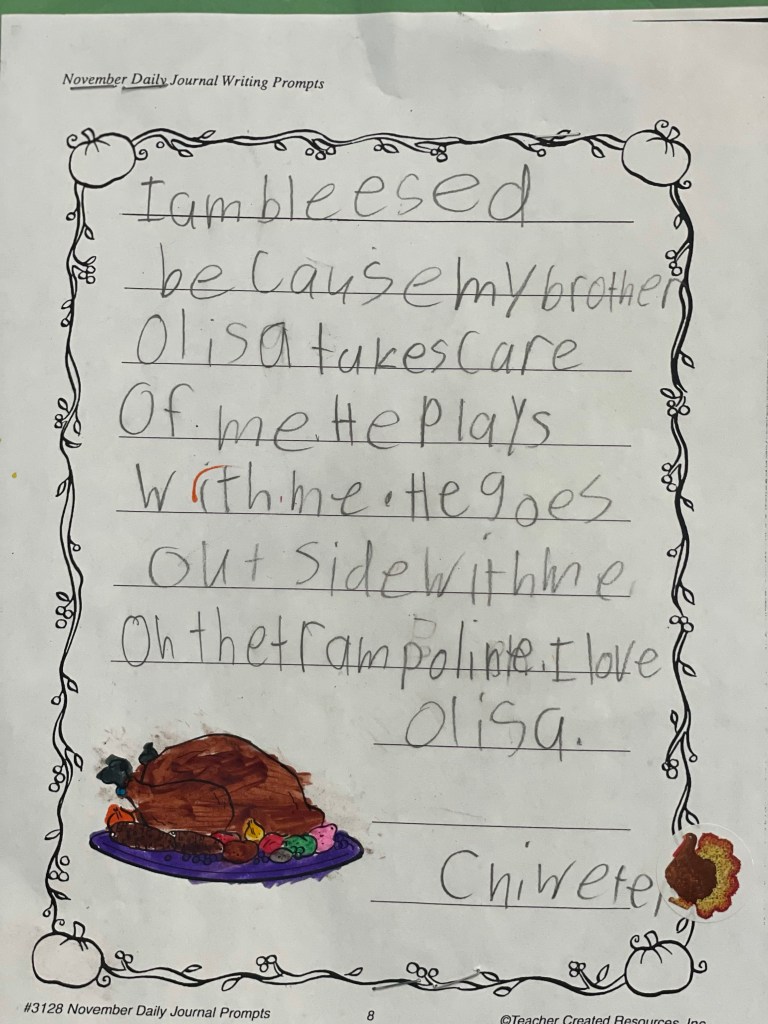 November Daily Journal Writing Prompts
I am bleesed
because my brother
Olisa takes care
Of me. He plays
With me. He goes
out side With me
On the trampoline. I love
Olisa.
#3128 November Daily Journal Prompts
8
©Teacher Created Resources, Inc.